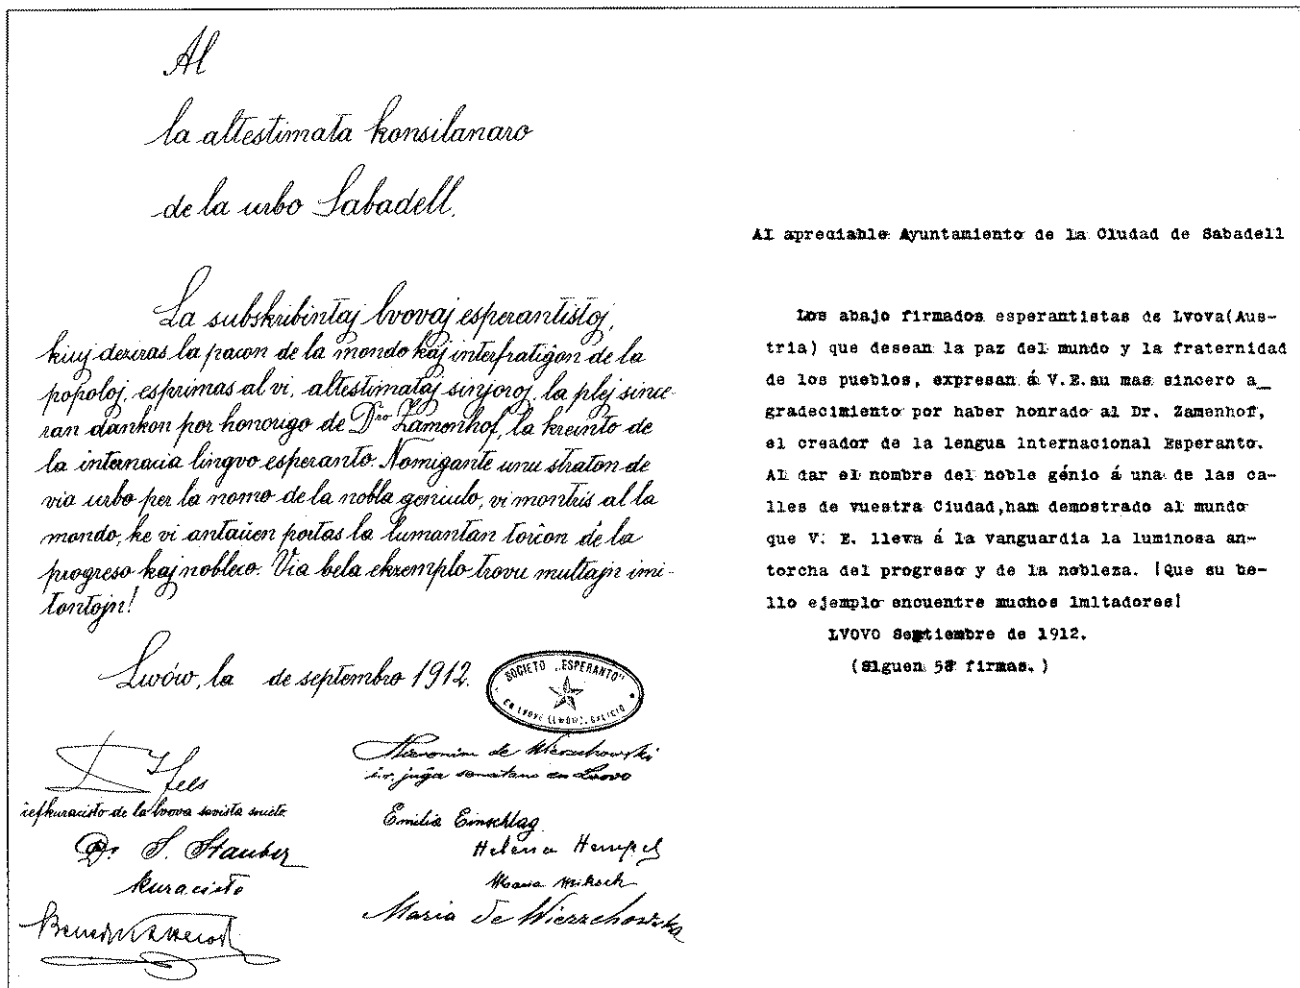 Al
la altestimata konsilanaro
de la urbo Sabadell.
La subskribintaj lvovaj esperantistoj,
kiuj deziras la pacon de la mondo kaj interfratiĝon de la
popoloj, esprimas al vi, altestimataj sinjoroj, la plej since-
ran dankon por honorigo de Dro Zamenhof, la kreinto de
la internacia lingvo esperanto. Nomigante unu straton de
via urbo per la nomo de la nobla geniulo, vi montris al la
mondo, ke vi antaŭen portas la lumantan torĉon de la
progreso kaj nobleco. Via bela ekzemplo trovu multajn imi-
tontojn!
Lwów, la de septembro 1912.
SOCIETO „ESPERANTO"
EN LVOVO (LWÓW), GALICIO
Fels
ĉefkuracisto de la lvova savista societo
Dr S. Stauber
kuracisto
Hieronim de Wierzchowski
juĝa senatano en Lvovo
Emilia Einschlag
Helena Hempel
Maria de Wierzchowska
Al apreciable Ayuntamiento de la Ciudad de Sabadell
Los abajo firmados esperantistas de Lvova(Aus-
tria) que desean la paz del mundo y la fraternidad
de los pueblos, expresan á V.E.su mas sincero a_
gradecimiento por haber honrado al Dr. Zamenhof,
el creador de la lengua internacional Esperanto.
Al dar el nombre del noble génio á una de las ca-
lles de vuestra Ciudad,han demostrado al mundo
que V. E. lleva á la vanguardia la luminosa an-
torcha del progreso y de la nobleza. ¡Que su be-
llo ejemplo encuentre muchos imitadores!
LVOVO Septiembre de 1912.
(Siguen 58 firmas.)